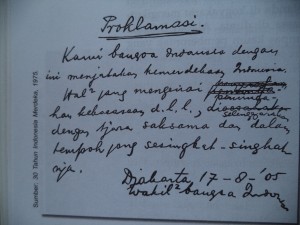 Proklamasi.
Kami bangsa Indonesia dengan
ini menjatakan kemerdekaan Indonesia.
Hal² jang mengenai
kekoeasaan d.l.l.,
diselenggarakan
dengan tjara saksama dan dalam
tempoh jang sesingkat-singkat
nja.
Djakarta 17 - 8 - '05
Wakil² bangsa Indonesia
Sumber: 30 Tahun Indonesia Merdeka, 1975.